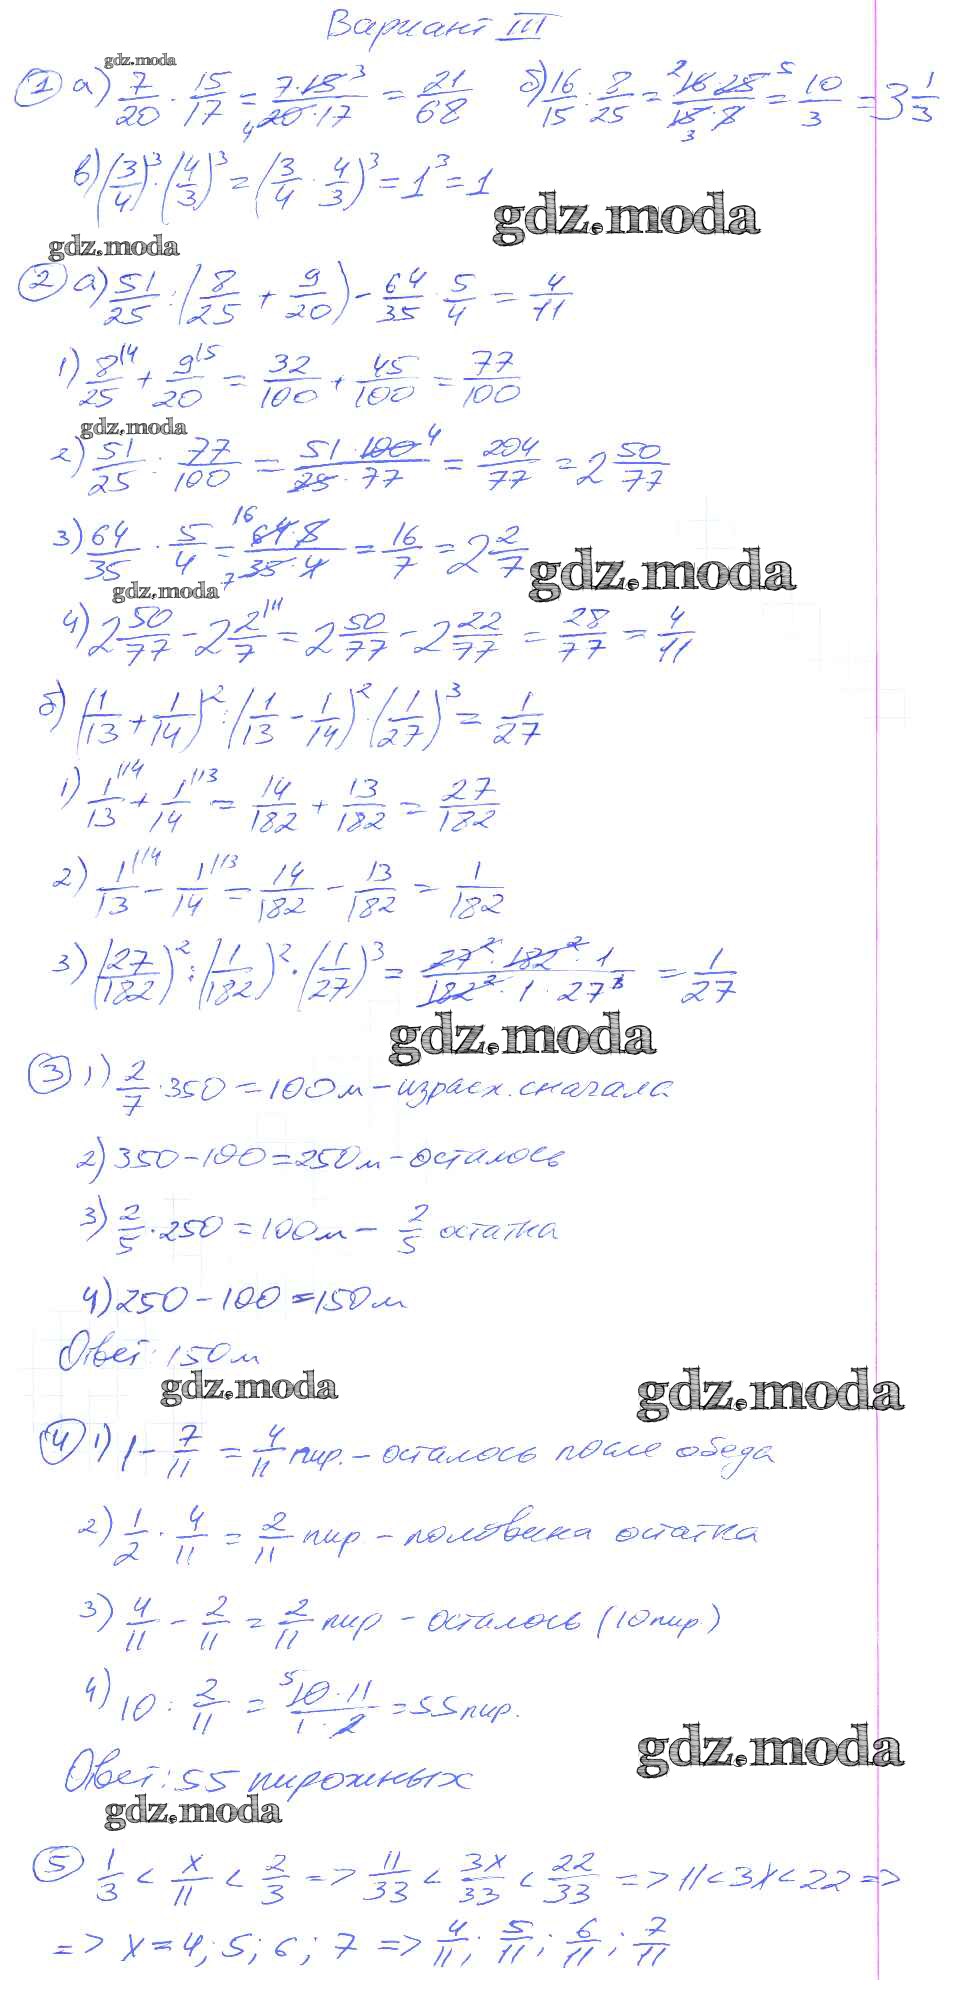 Вариант III
gdz.moda
① а) 7/20 · 15/17 = 7·15³/₄20·17 = 21/68 б) 16/15 : 8/25 = ²16·25⁵/15₃·8 = 10/3 = 3 1/3
в) (3/4)³ · (4/3)³ = (3/4 · 4/3)³ = 1³ = 1
gdz.moda
gdz.moda
② а) 51/25 : (8/25 + 9/20) - 64/35 · 5/4 = 4/11
1) 8/25 |4 + 9/20 |5 = 32/100 + 45/100 = 77/100
gdz.moda
2) 51/25 : 77/100 = 51·100⁴/25·77 = 204/77 = 2 50/77
3) 64/35 · 5/4 = ¹⁶64·8/₇35·4 = 16/7 = 2 2/7
gdz.moda
gdz.moda
4) 2 50/77 - 2 2/7 |11 = 2 50/77 - 2 22/77 = 28/77 = 4/11
б) (1/13 + 1/14)² : (1/13 - 1/14)² · (1/27)³ = 1/27
1) 1/13 |14 + 1/14 |13 = 14/182 + 13/182 = 27/182
2) 1/13 |14 - 1/14 |13 = 14/182 - 13/182 = 1/182
3) (27/182)² : (1/182)² · (1/27)³ = 27²·182²·1/182²·1·27³ = 1/27
gdz.moda
③ 1) 2/7 · 350 = 100 м - израсх. сначала
2) 350 - 100 = 250 м - осталось
3) 2/5 · 250 = 100 м - 2/5 остатка
4) 250 - 100 = 150 м
Ответ: 150 м
gdz.moda
gdz.moda
④ 1) 1 - 7/11 = 4/11 пир. - осталось после обеда
2) 1/2 · 4/11 = 2/11 пир - половина остатка
3) 4/11 - 2/11 = 2/11 пир - осталось (10 пир)
4) 10 : 2/11 = ⁵10·11/1·2 = 55 пир.
gdz.moda
Ответ: 55 пирожных
gdz.moda
⑤ 1/3 < x/11 < 2/3 => 11/33 < 3x/33 < 22/33 => 11 < 3x < 22 =>
=> x = 4; 5; 6; 7 => 4/11; 5/11; 6/11; 7/11